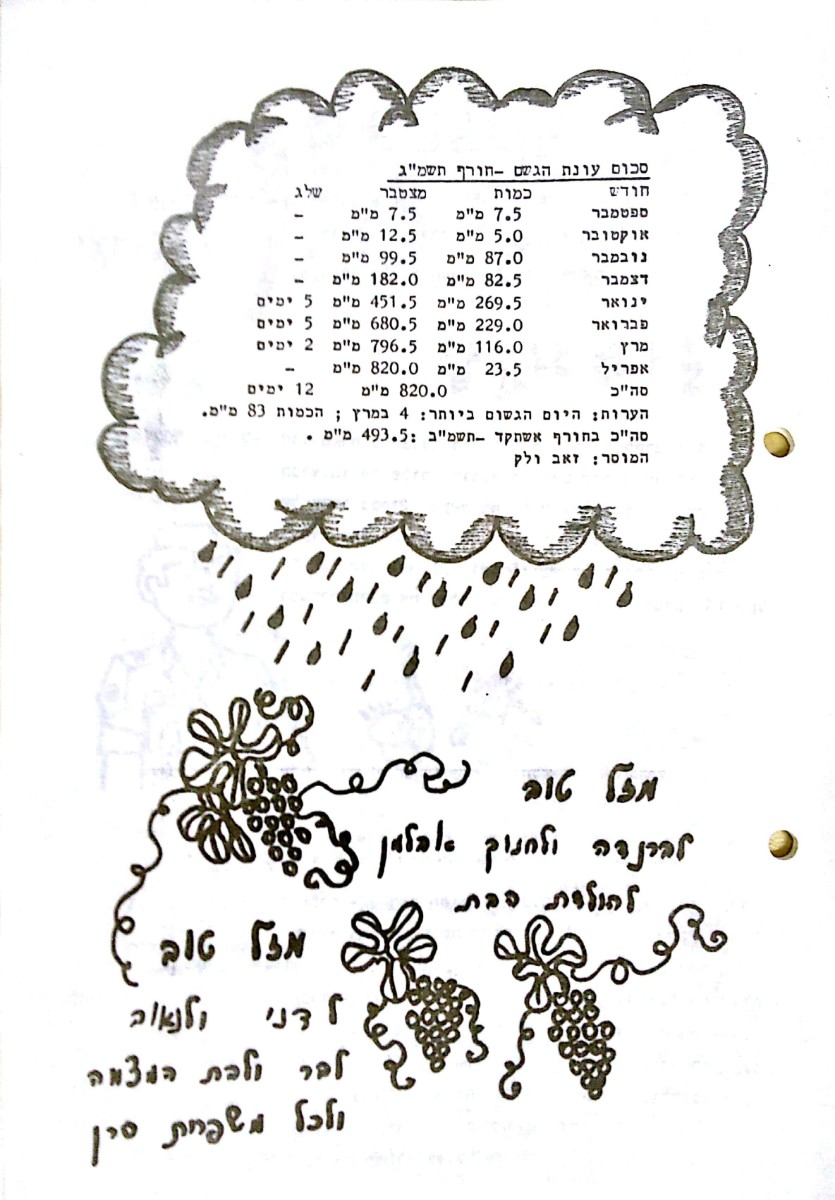 סכום עונת הגשם -חורף תשמ"ג
חודש כמות מצטבר שלג
ספטמבר 7.5 מ"מ 7.5 מ"מ -
אוקטובר 5.0 מ"מ 12.5 מ"מ -
נובמבר 87.0 מ"מ 99.5 מ"מ -
דצמבר 82.5 מ"מ 182.0 מ"מ -
ינואר 269.5 מ"מ 451.5 מ"מ 5 ימים
פברואר 229.0 מ"מ 680.5 מ"מ 5 ימים
מרץ 116.0 מ"מ 796.5 מ"מ 2 ימים
אפריל 23.5 מ"מ 820.0 מ"מ -
סה"כ 820.0 מ"מ 12 ימים
הערות: היום הגשום ביותר: 4 במרץ ; הכמות 83 מ"מ.
סה"כ בחורף אשתקד -תשמ"ב :493.5 מ"מ .
המוסר: זאב ולק
מזל טוב
לברנדה ולחנוך אבלמן
להולדת הבת
מזל טוב
לדני ולנאוה
לבר ולבת המצוה
ולכל משפחת סרן